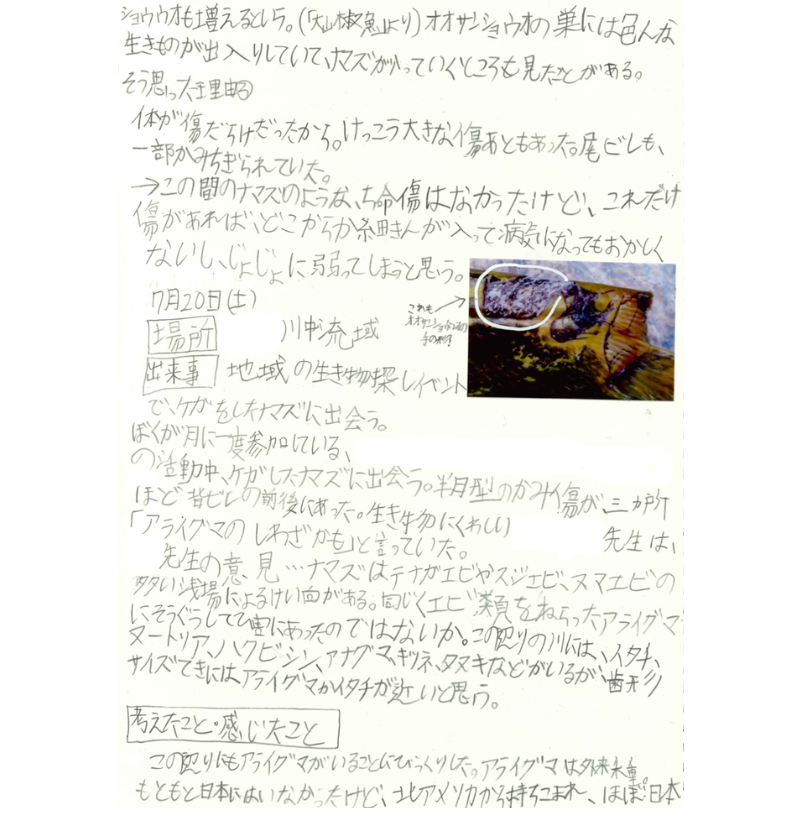 ショウウオも増えるという。(「大山椒魚」より)オオサンショウオの巣には色んな
生きものが出入りしていて、ナマズが入っていくところも見たことがある。
そう思った理由
体が傷だらけだったから。けっこう大きな傷あともあった。尾ビレも、
一部かみちぎられていた。
→この間のナマズのような、ち命傷はなかったけど、これだけ
傷があれば、どこからか細きんが入って病気になってもおかしく
ないし、じょじょに弱ってしまうと思う。
7月20日(土)
これも
オオサンショウウオの
場所 川中流域
出来事 地域の生き物探しイベント
で、ケガをしたナマズに出会う。
ぼくが月に一度参加している、
の活動中、ケガしたナマズに出会う。半月型のかみ傷が、三カ所
ほど背ビレの前後にあった。生き物にくわしい 先生は、
「アライグマのしわざかも」と言っていた。
先生の意見…ナマズはテナガエビやスジエビ、ヌマエビの
多い浅場によるけい向がある。同じくエビ類をねらったアライグマ
にそうぐうしてひ害にあったのではないか。この辺りの川には、イタチ、
ヌートリア、ハクビシン、アナグマ、キツネ、タヌキなどがいるが、歯形
サイズてきにはアライグマかイタチが近いと思う。
考えたこと・感じたこと
この辺りにもアライグマがいることにびっくりした。アライグマは外来種。
もともと日本にはいなかったけど、北アメリカから持ちこまれ、ほぼ日本